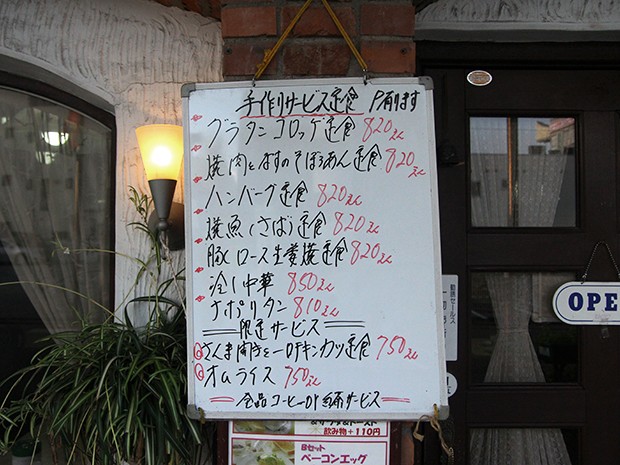 手作りサービス定食 P有ります
グラタンコロッケ定食 820えん
焼肉となすのそぼろあん定食 820えん
ハンバーグ定食 820えん
焼魚(さば)定食 820えん
豚ロース生姜焼定食 820えん
冷し中華 850えん
ナポリタン 810えん
限定サービス
さんま開きと一口チキンカツ定食 750えん
オムライス 750えん
全品コーヒー サービス
OPE
動販セールス
&サラダ&トースト
飲み物+110円
Bセット
ベーコンエッグ